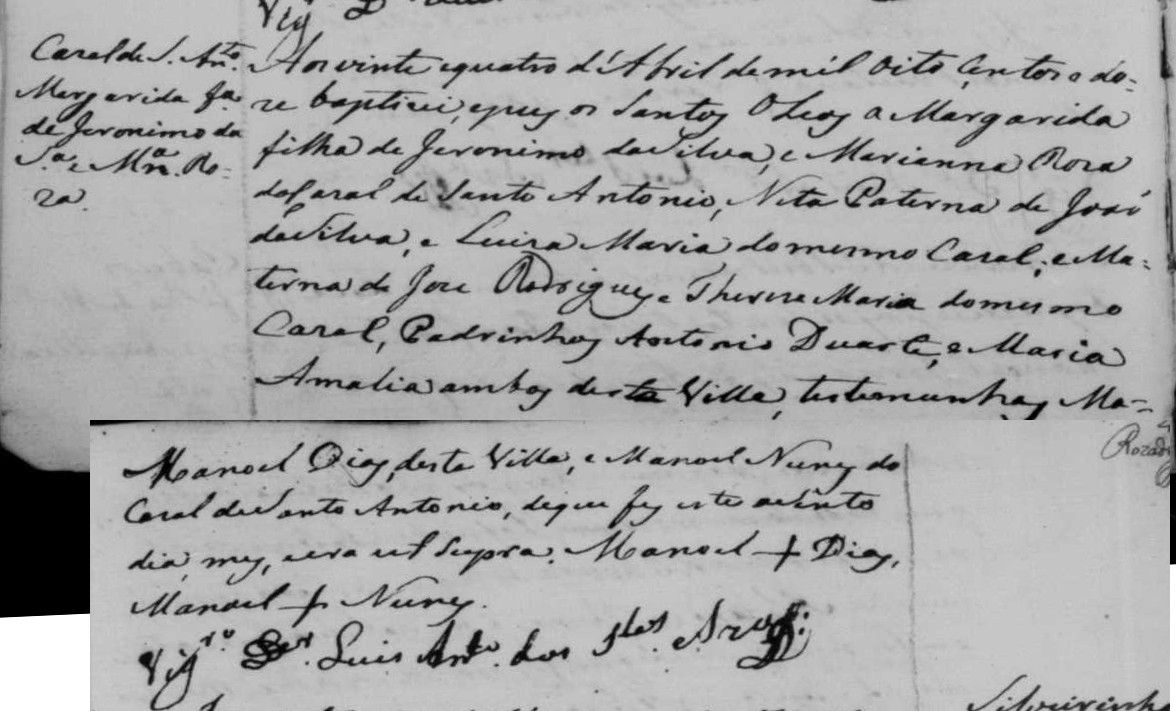 Vig
Casal de S. Anto.
Margarida fa.
de Jeronimo da
Sa. e Mna. Ro-
za.
Aos vinte e quatro d'Abril de mil oito centos e do-
ze baptizei, e puz os Santos Oleos a Margarida
filha de Jeronimo da Silva, e Marianna Roza
do Cazal de Santo Antonio, Neta Paterna de José
da Silva, e Luiza Maria do mesmo Cazal, e Ma-
terna de Joze Rodrigues e Thereze Maria do mesmo
Cazal, Padrinhos Antonio Duarte, e Maria
Amalia ambos desta Villa, testemunhas Ma-
Manoel Dias, desta Villa, e Manoel Nunes do
Cazal de Santo Antonio, de que fiz este acento
dia, mez, e era ut supra. Manoel + Dias,
Manoel + Nunes.
Vigro. Luis Anto. dos
Roza
Silveirinh